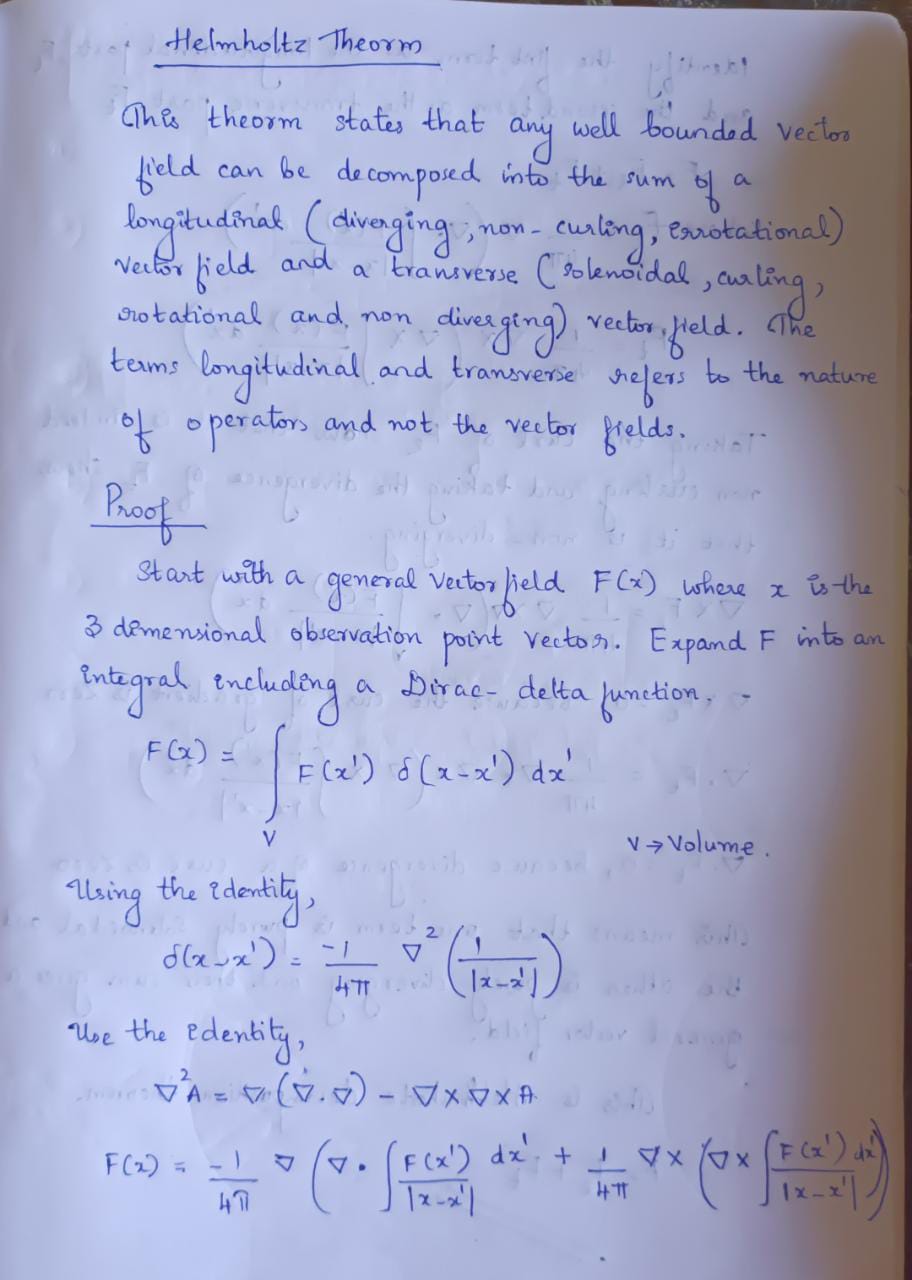 Helmholtz Theorm
This theorm states that any well bounded vector
field can be decomposed into the sum of a
longitudinal (diverging, non-curling, errotational)
vector field and a transverse (solenoidal, curling,
rotational and non diverging) vector field. The
terms longitudinal and transverse refers to the nature
of operators and not the vector fields.
Proof
Start with a general vector field F(x) where x is the
3 dimensional observation point vector. Expand F into an
integral including a Dirac-delta function.
F(x) = ∫ F(x') δ(x-x') dx'
V
V → Volume.
Using the identity,
δ(x-x') = -1/4π ∇² (1/|x-x'|)
Use the identity,
∇²A = ∇(∇.∇) - ∇×∇×A
F(x) = -1/4π ∇ (∇. ∫ F(x')/|x-x'| dx' + 1/4π ∇× (∇× ∫ F(x') dx'/|x-x'|)